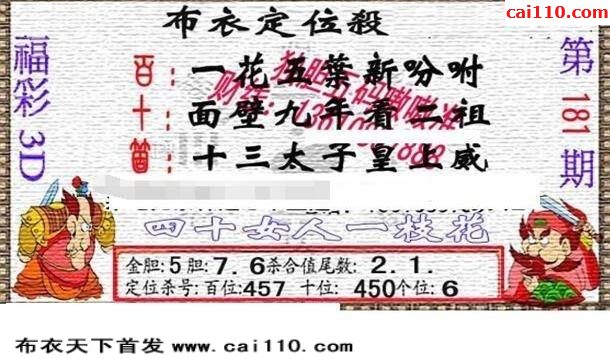 彩吧助手
cai110.com
布衣定位殺
福彩3D
第181期
百: 一花五葉新吩咐
十: 面壁九年看二祖
個: 十三太子皇上威
四十女人一枝花
金胆:5胆:7.6杀合值尾数:2.1.
定位杀号:百位:457 十位:450个位:6
布衣天下首发 www.cai110.com